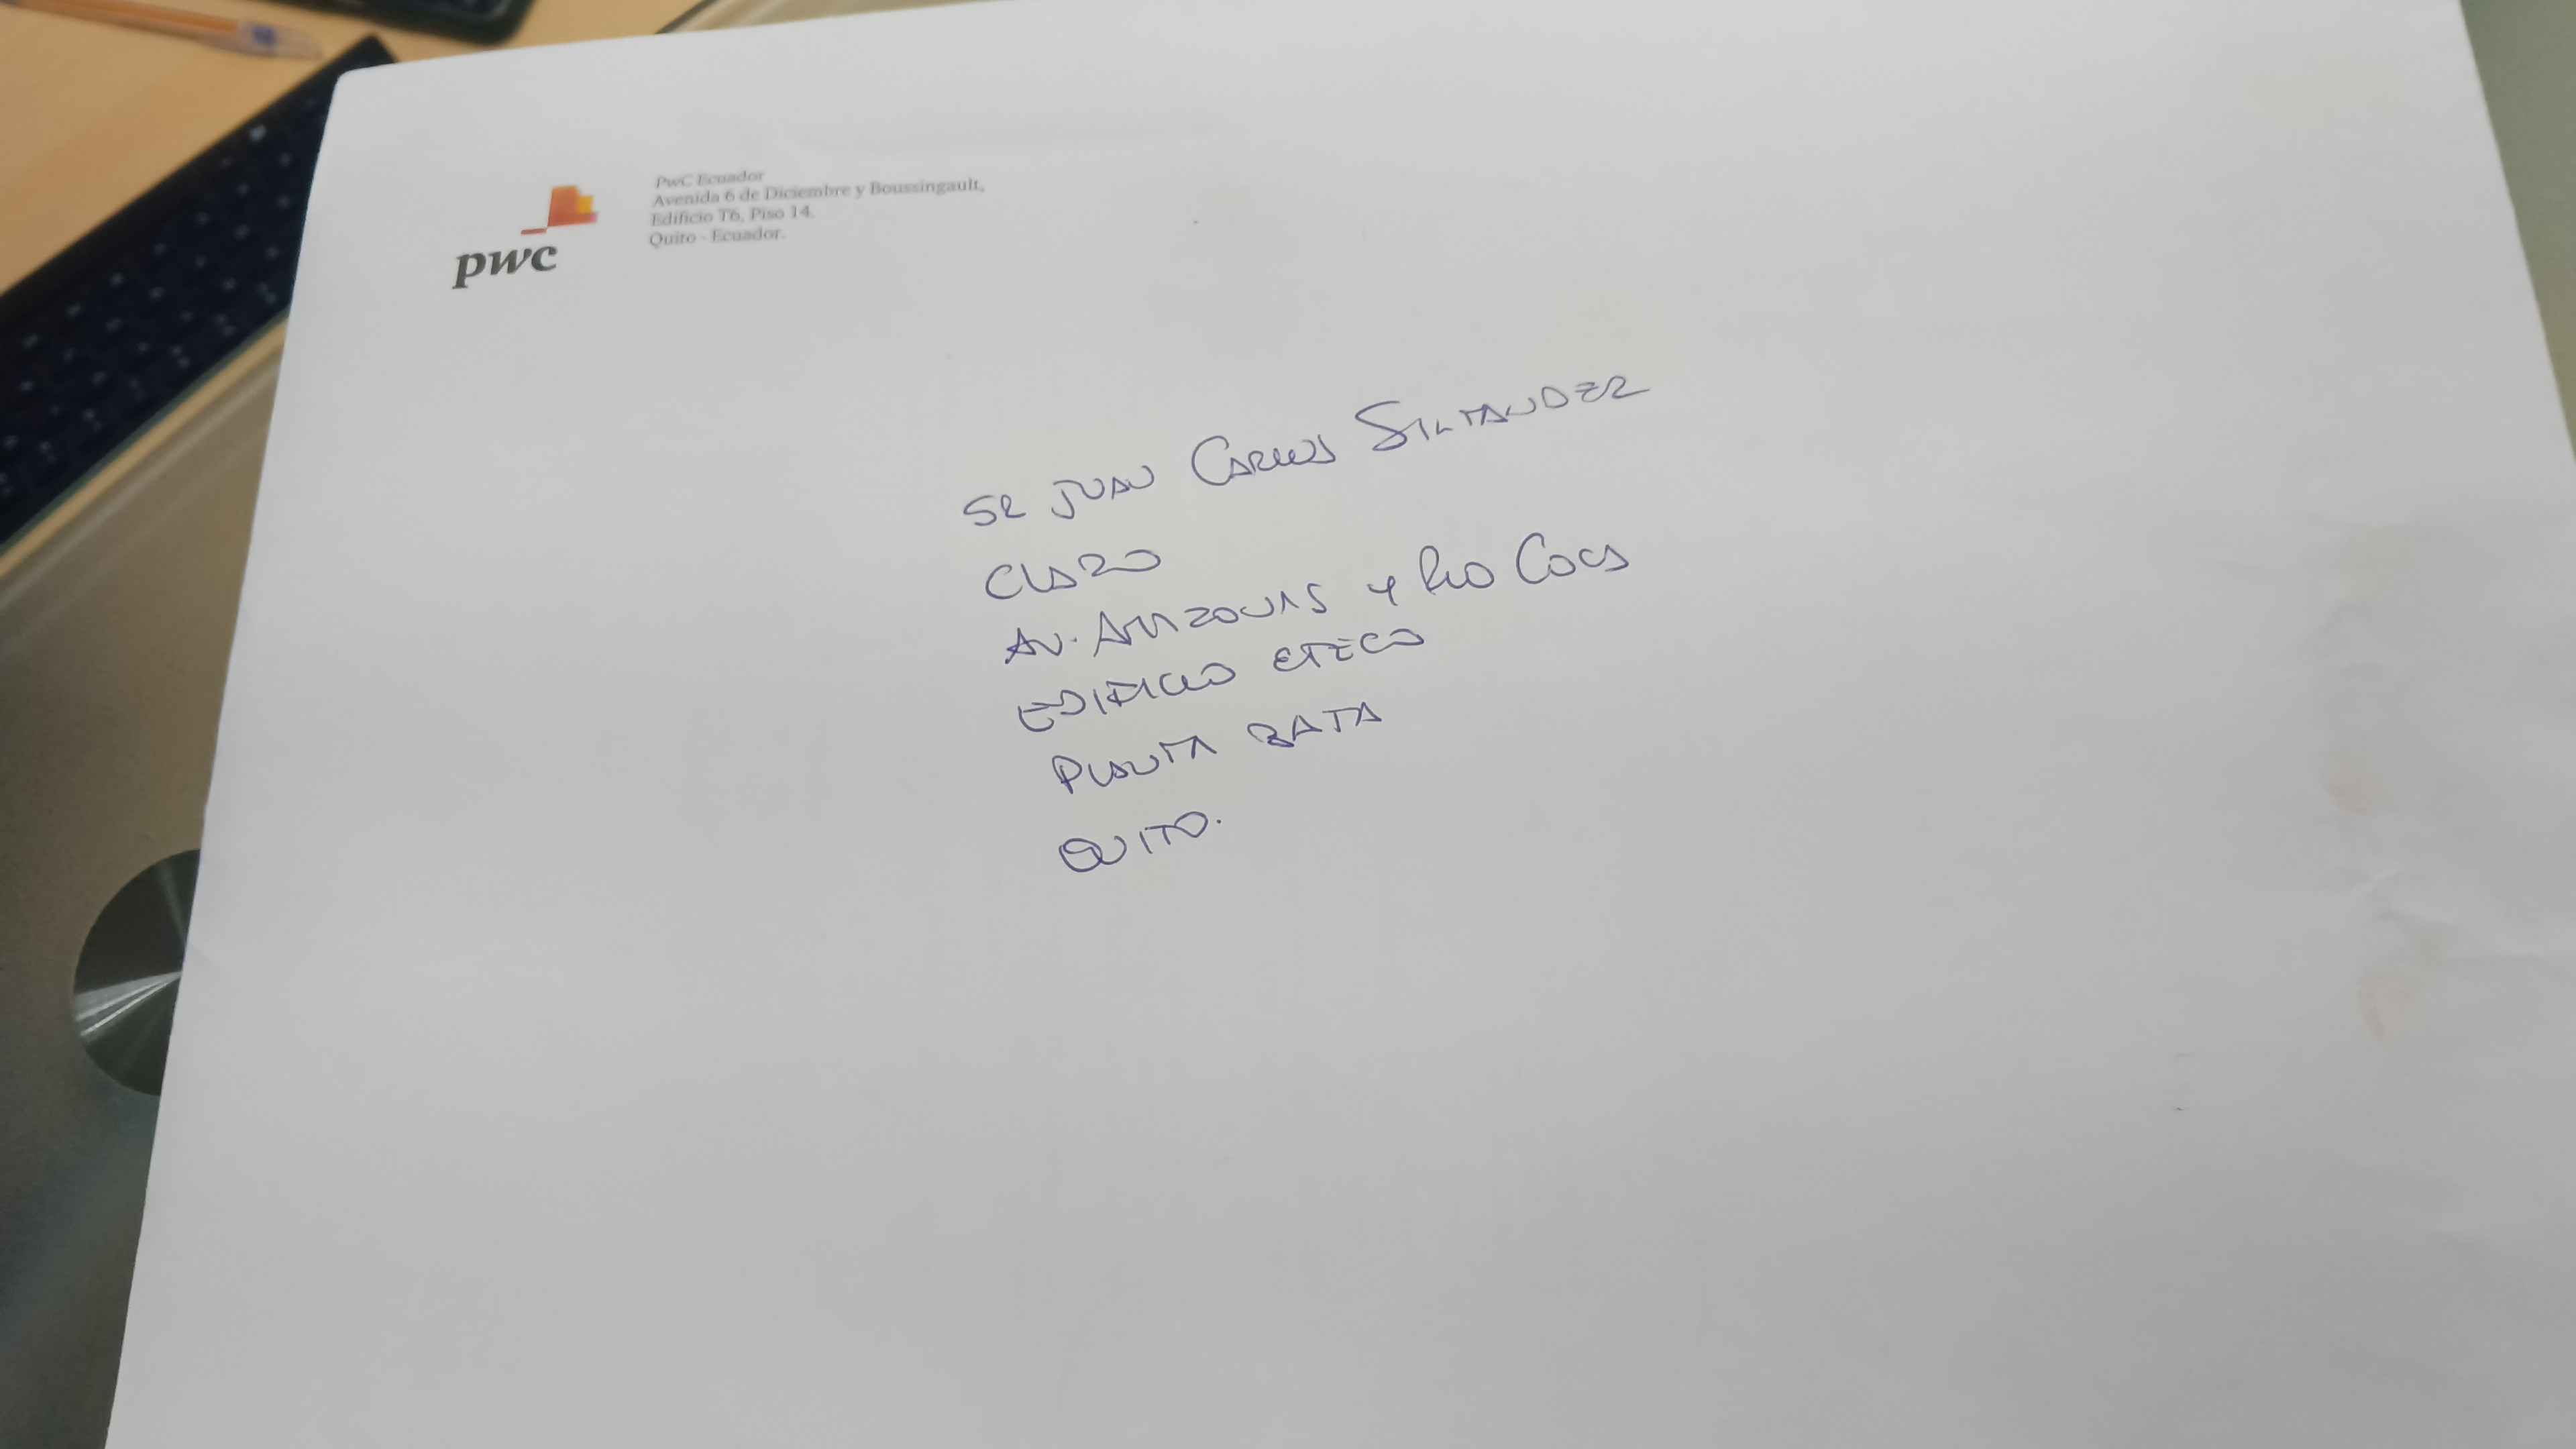 pwc
PwC Ecuador
Avenida 6 de Diciembre y Boussingault,
Edificio T6, Piso 14.
Quito - Ecuador.
SR JUAN CARLOS
CLARO
AV. AMAZONAS Y RIO COCA
EDIFICIO ETECO
PLANTA BAJA
QUITO.